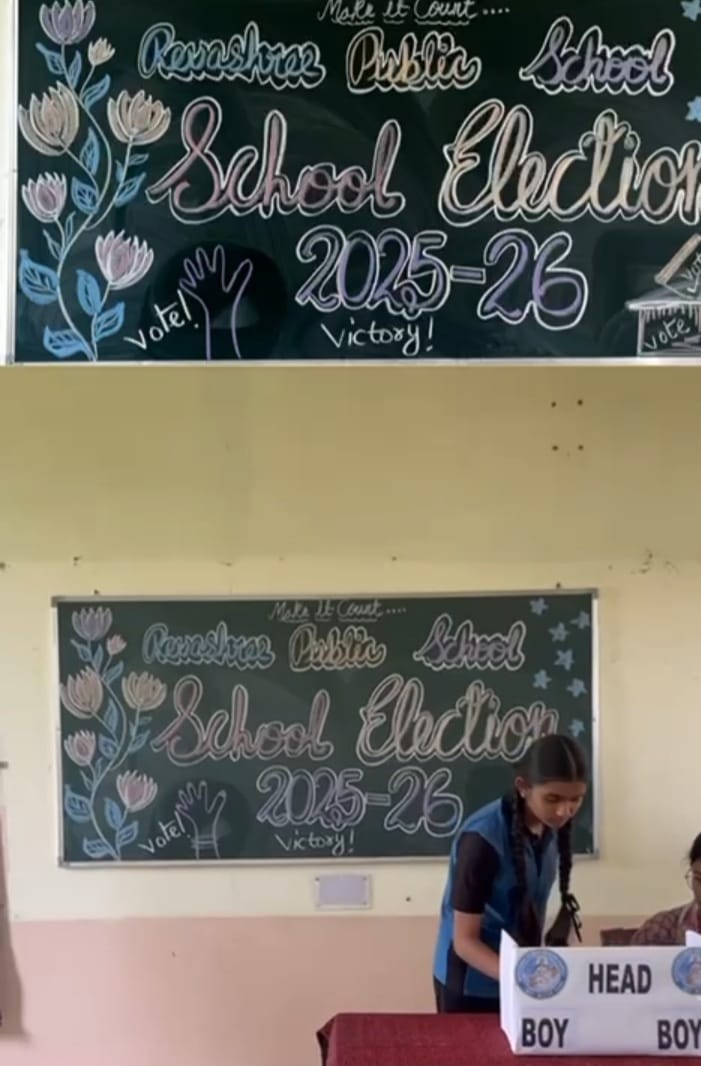 Make it Count....
Revashree Public School
School Election
2025-26
Vote!
Victory!
Vote
Vote
Make It Count....
Revashree Public School
School Election
2025-26
Vote!
Victory!
HEAD
BOY BOY